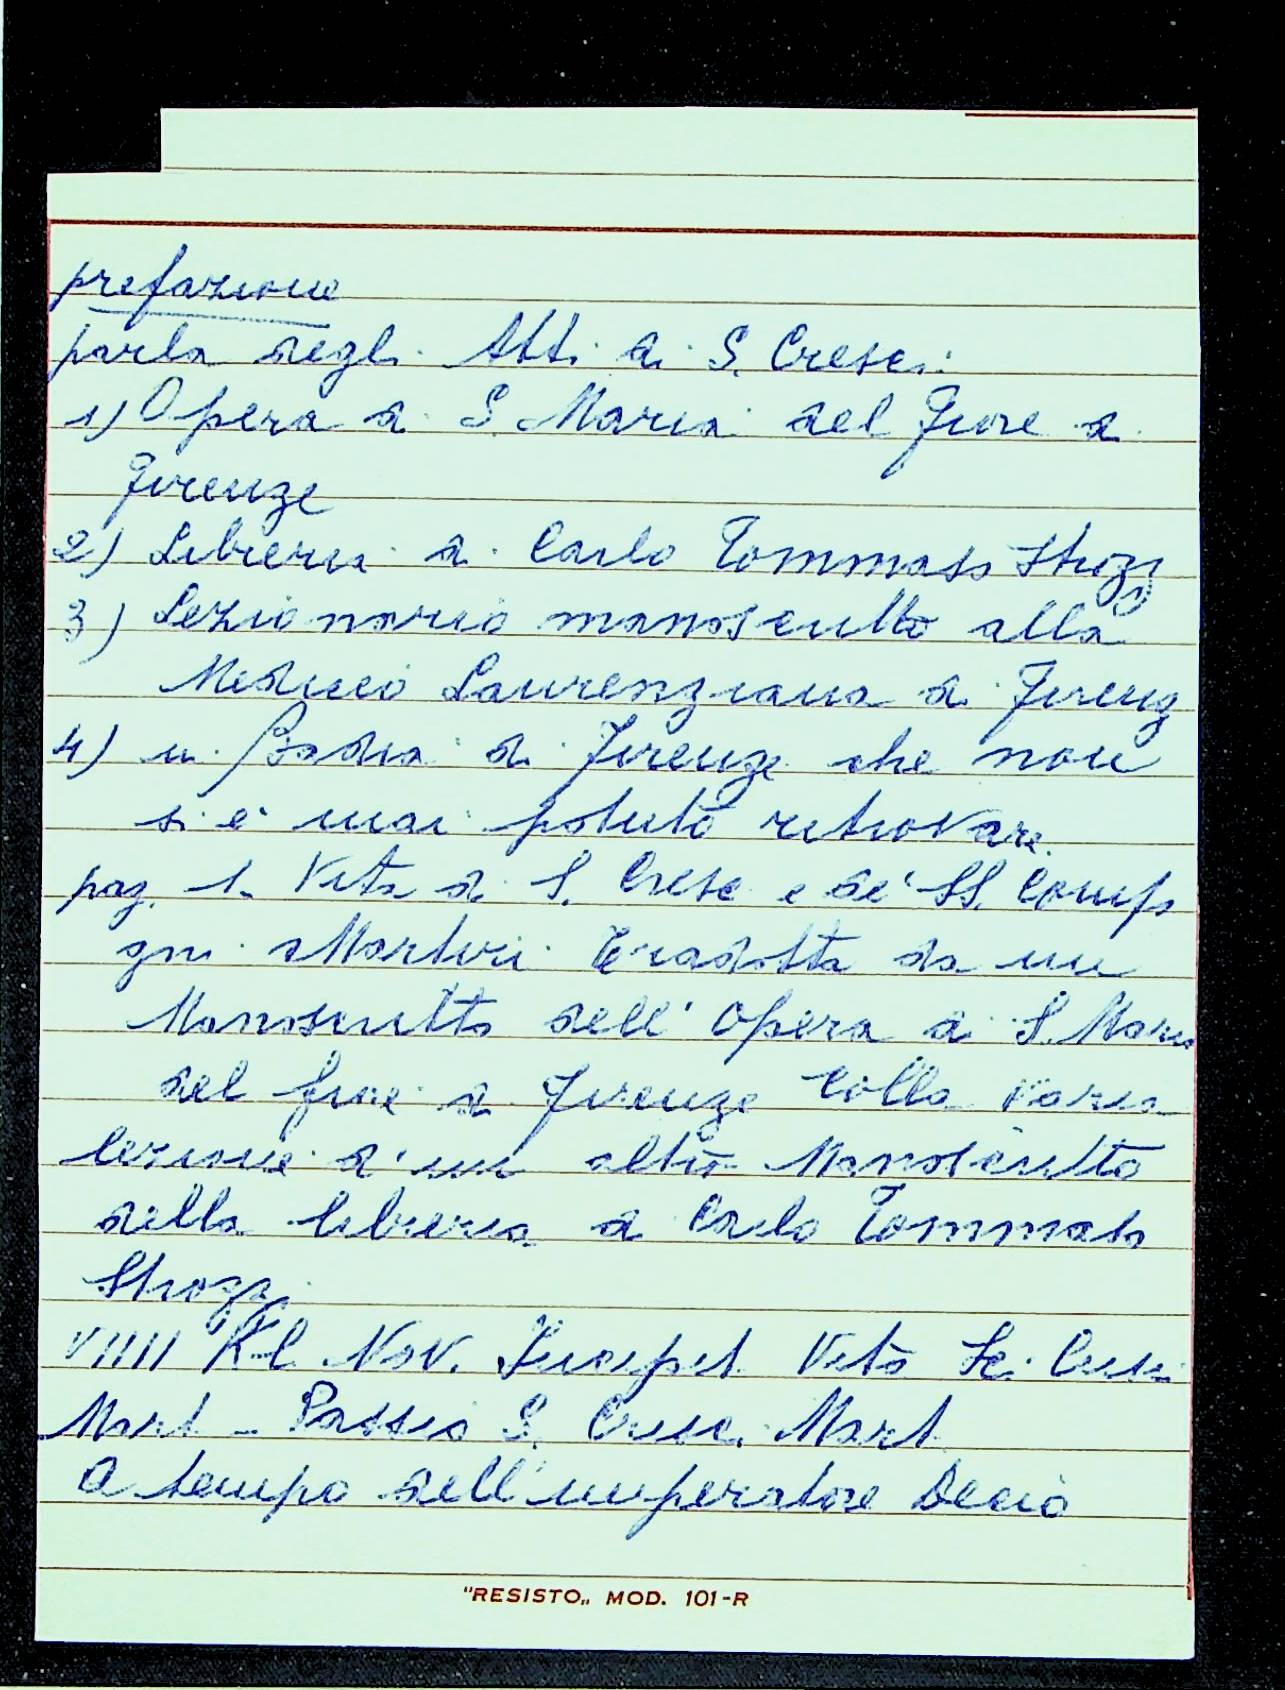 prefazione
parla degli Atti di S. Cresci:
1) Opera di S. Maria del Fiore di
Firenze
2) Libreria di Carlo Tommaso Strozzi
3) Lezionario manoscritto alla
Mediceo Laurenziana di Firenz
4) in Badia di Firenze che non
si è mai potuto ritrovare.
pag. 1. Vita di S. Cresc e de' SS. Compa
gni Martiri Tradotta da un
Manoscritto dell'Opera di S. Maria
del fiore di Firenze Colla varia
lezione d'un altro Manoscritto
della libreria di Carlo Tommaso
Strozzi.
VIIII Kl. Nov. Incipit Vita Sc. Cresci
Mart - Passio S. Cresc. Mart
A tempo dell'imperatore Decio
"RESISTO„ MOD. 101-R